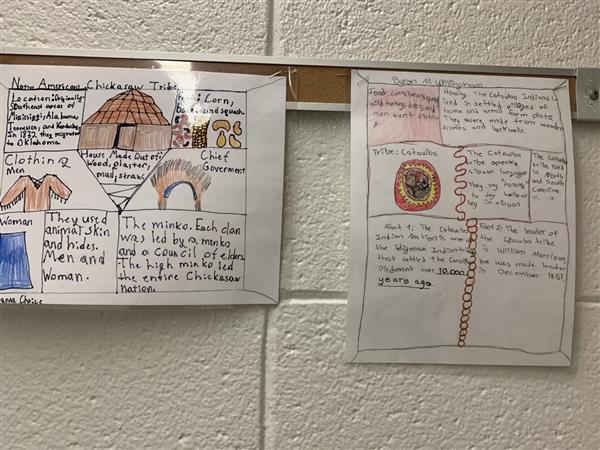 Native Americans Chickasaw Tribe
Location: Originally
Southeast areas of
Mississippi, Alabama,
Tennessee, and Kentucky.
In 1832 they migrated
to Oklahoma
Corn,
and squash
Clothing
Men
House Made Out of:
Wood, plaster,
mud, straw
Chief
Goverment
Woman
They used
animal skin
and hides.
Men and
Woman.
The minko. Each clan
was led by a minko
and a Council of elders.
The high minko led
the entire Chickasaw
nation.
Choice
Byron M
Food: corn, beans,
wild turkey, deer, and
men went
Housing: The Catawba Indians
lived in settled villages of
home and small farm plots,
They were made from wooden
frames and
Tribe: Catawba
The Catawba
tribe speaks
siouan language
They say
to say hello or
hey in siouan
The Catawba
tribe lived
in North
and South
Carolina.
Fact 1: The Catawba
Indian Nation is one of
the Indigenous Indian tribes
that settled the Carolina
Piedmont over 10,000
years ago.
Fact 2: The leader of
the Catawba tribe
is William Morrison,
he was made leader
in December 1851.